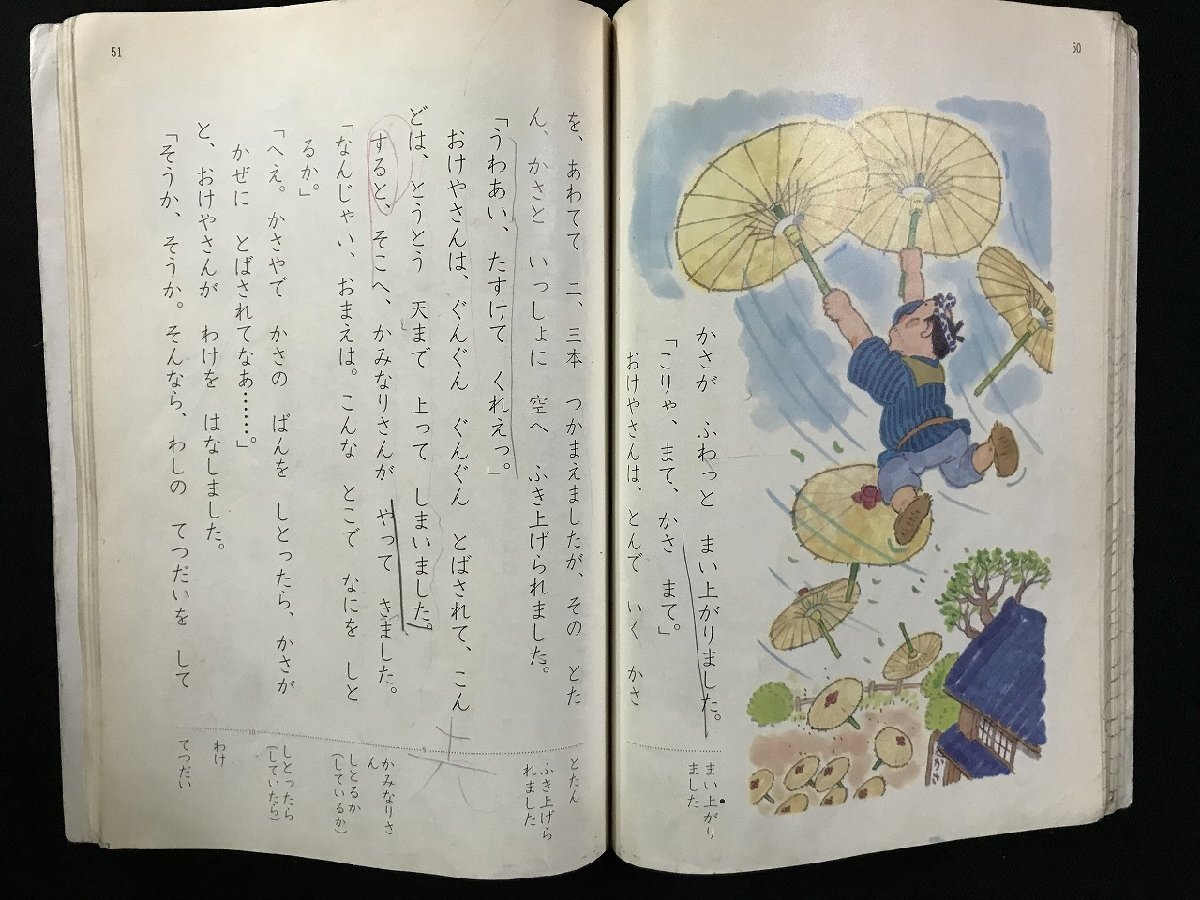 50
かさが ふわっと まい上がりました。
「こりゃ、まて、かさ まて。」
おけやさんは、とんで いく かさ
まい上がり
ました
51
を、あわてて 二、三本 つかまえましたが、その とた
ん、かさと いっしょに 空へ ふき上げられました。
「うわあい、たすけて くれえっ。」
おけやさんは、ぐんぐん ぐんぐん とばされて、こん
どは、とうとう 天まで 上って しまいました。
すると、そこへ、かみなりさんが やって きました。
「なんじゃい、おまえは。こんな とこで なにを しと
るか。」
「へえ。かさやで かさの ばんを しとったら、かさが
かぜに とばされてなあ……。」
と、おけやさんが わけを はなしました。
「そうか、そうか。そんなら、わしの てつだいを して
とたん
ふき上げら
れました
5
かみなりさ
ん
しとるか
(しているか)
しとったら
(していたら)
10
わけ
てつだい